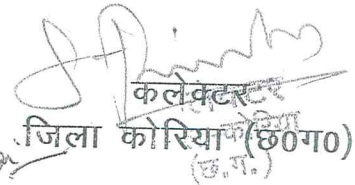 कलेक्टर
जिला कोरिया (छ0ग0)
(छ.ग.)